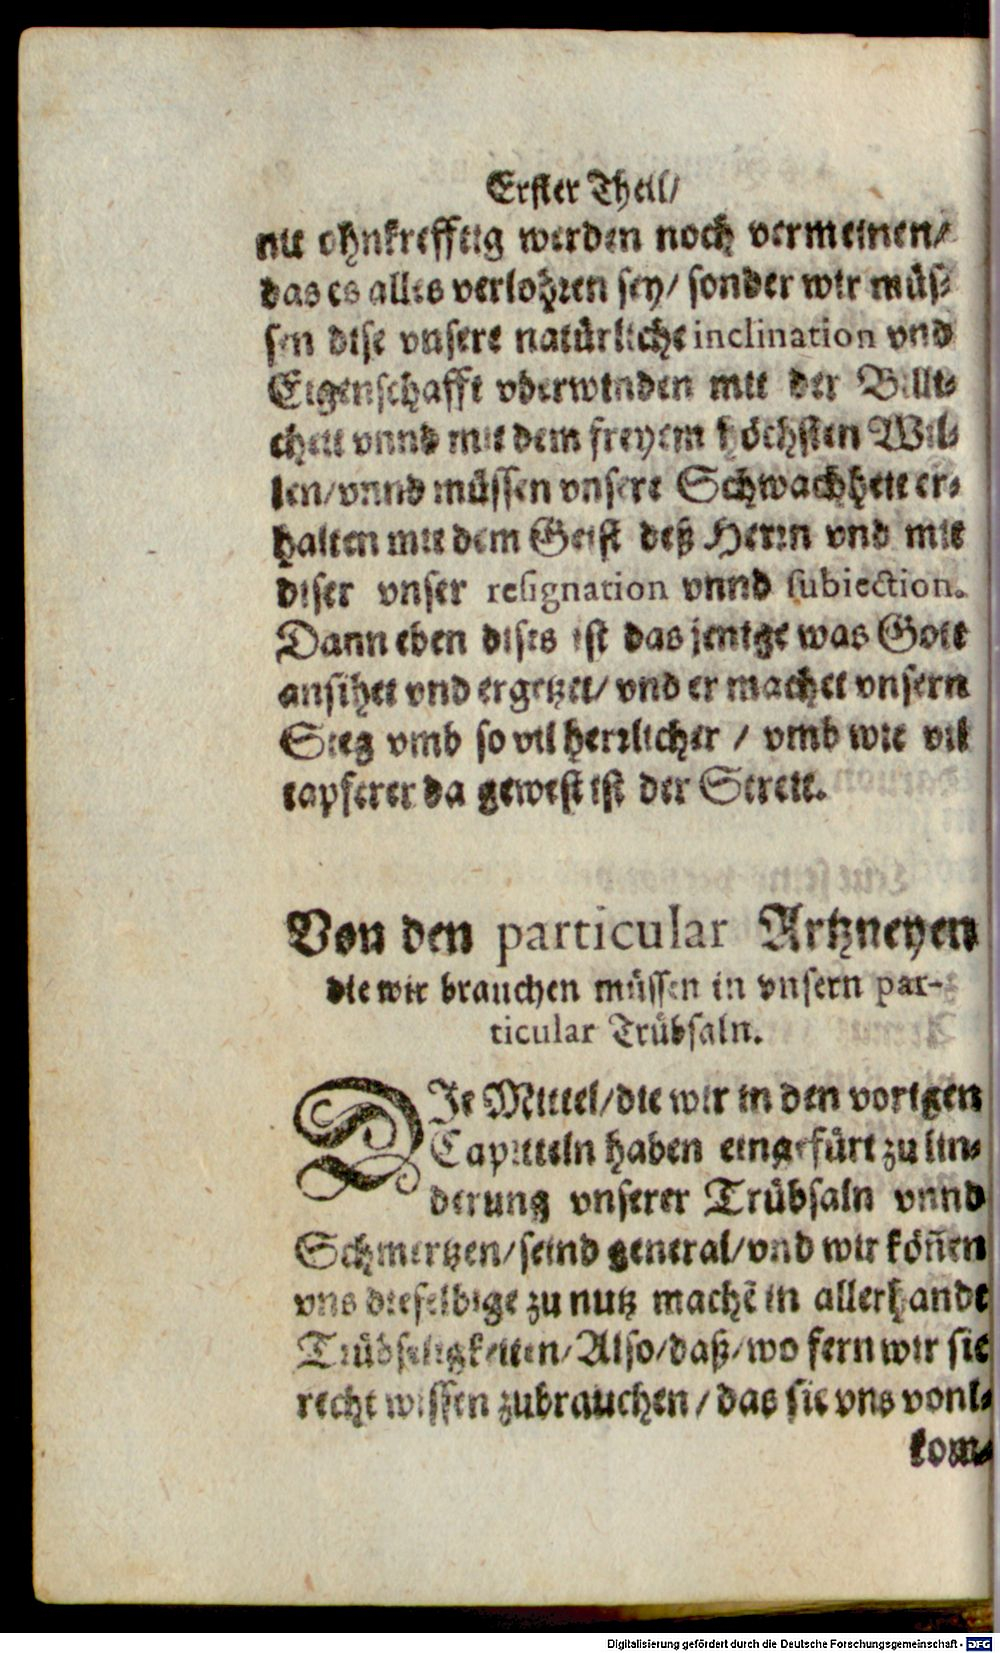 Erster Theil/
nit ohnkrefftig werden noch vermeinen/
das es alles verlohren sey/ sonder wir müs-
sen dise vnsere natürliche inclination vnd
Eigenschafft vberwinden mit der Billi-
cheit vnnd mit dem freyem höchsten Wil-
len/vnnd müssen vnsere Schwachheit er-
halten mit dem Geist deß Herrn vnd mit
diser vnser resignation vnnd subiection.
Dann eben dises ist das jenige was Gott
ansihet vnd ergetzet/ vnd er machet vnsern
Sieg vmb so vil herrlicher / vmb wie vil
tapferer da gewest ist der Streit.
Von den particular Artzneyen
die wir brauchen müssen in vnsern par-
ticular Trübsaln.
DIe Mittel/die wir in den vorigen
Capitteln haben eingefürt zu lin-
derung vnserer Trübsaln vnnd
Schmertzen/seind general/vnd wir köñen
vns dieselbige zu nutz machẽ in allerhande
Trübseligkeiten/Also/daß/wo fern wir sie
recht wissen zubrauchen/das sie vns vonl-
kom-
Digitalisierung gefördert durch die Deutsche Forschungsgemeinschaft - DFG